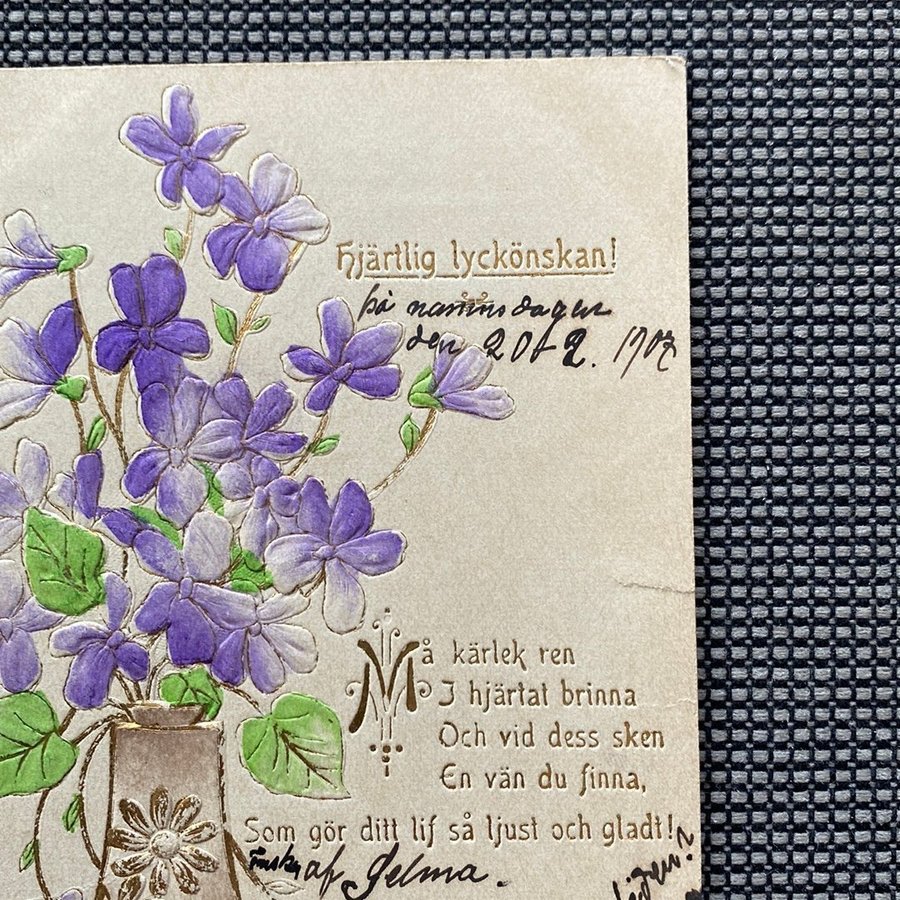 Hjärtlig lyckönskan!
på namnsdagen
den 20/2. 1907
Må kärlek ren
I hjärtat brinna
Och vid dess sken
En vän du finna,
Som gör ditt lif så ljust och gladt!
af Selma.